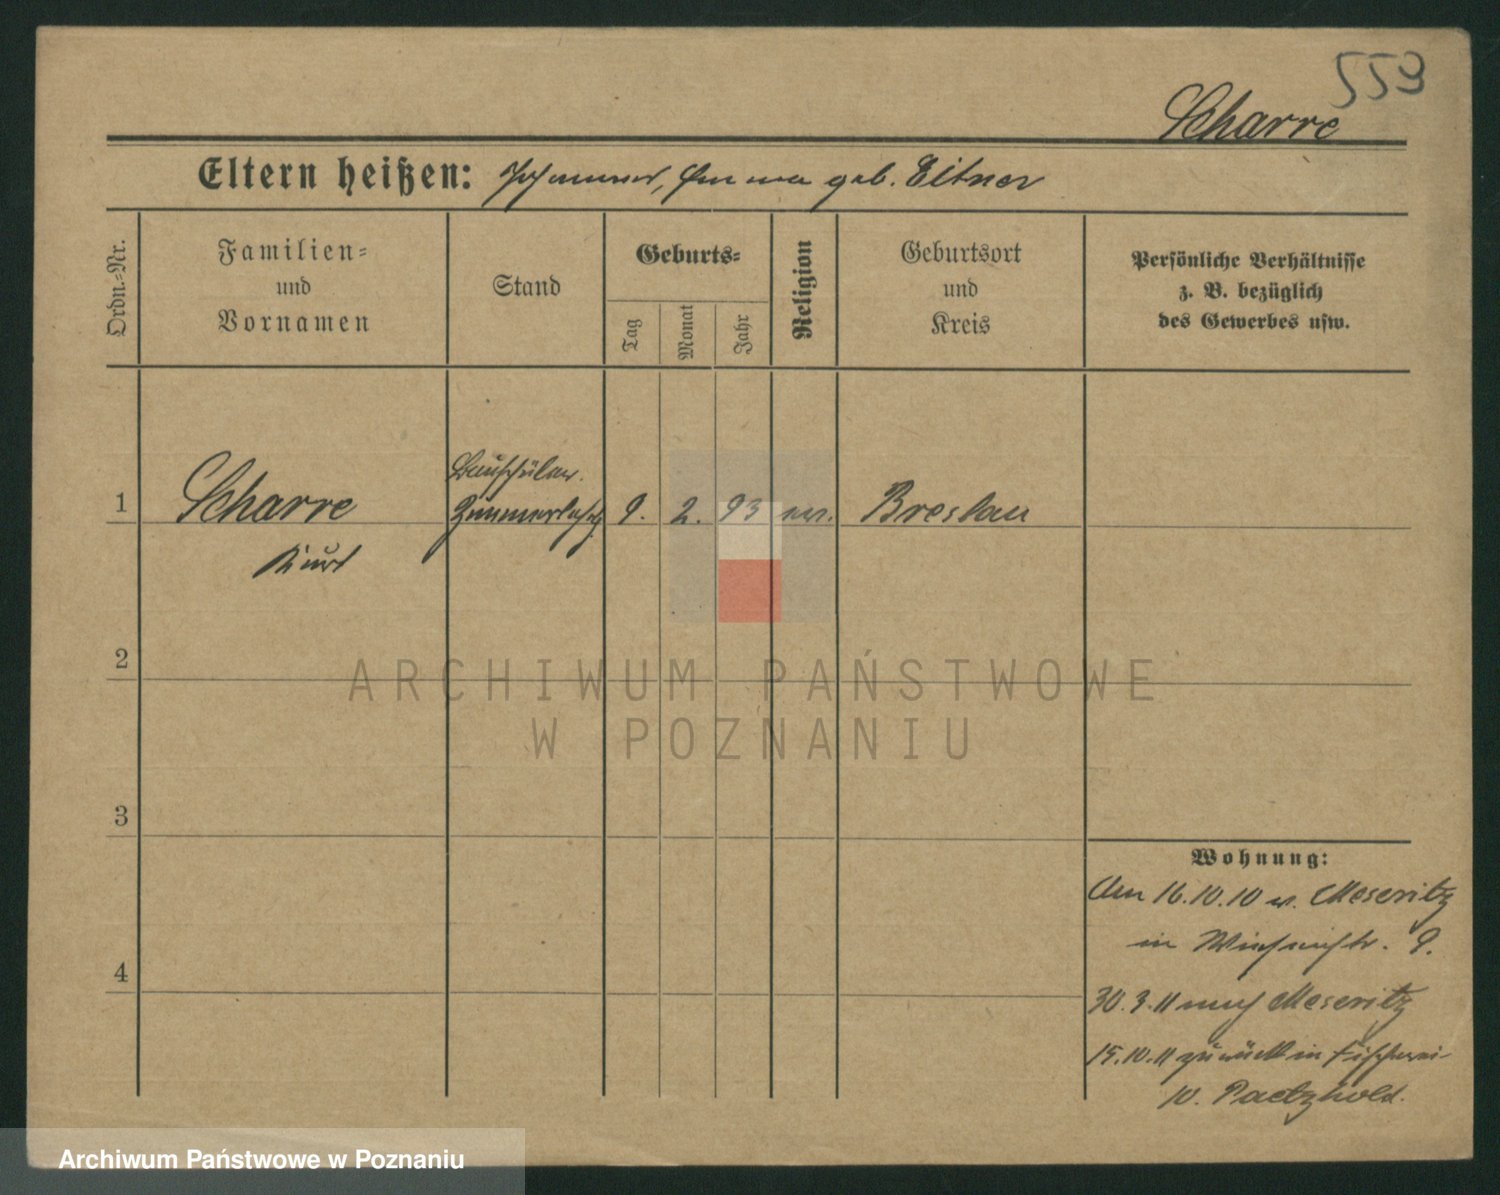 559
Scharre
Eltern heißen: Johannes, Emma geb. Eitner
Ordn.-Nr.
Familien-
und
Vornamen
Stand
Geburts-
Tag
Monat
Jahr
Religion
Geburtsort
und
Kreis
Persönliche Verhältnisse
z. B. bezüglich
des Gewerbes usw.
1 Scharre Bauschüler. 9. 2. 93 ev. Breslau
Kurt
2
3
4
Wohnung:
Am 16.10.10 v. Meseritz
in 9.
30.3.11 nach Meseritz
15.10.11 zurück in Fischerei-
10. Paetzhold.
ARCHIWUM PAŃSTWOWE
W POZNANIU
Archiwum Państwowe w Poznaniu